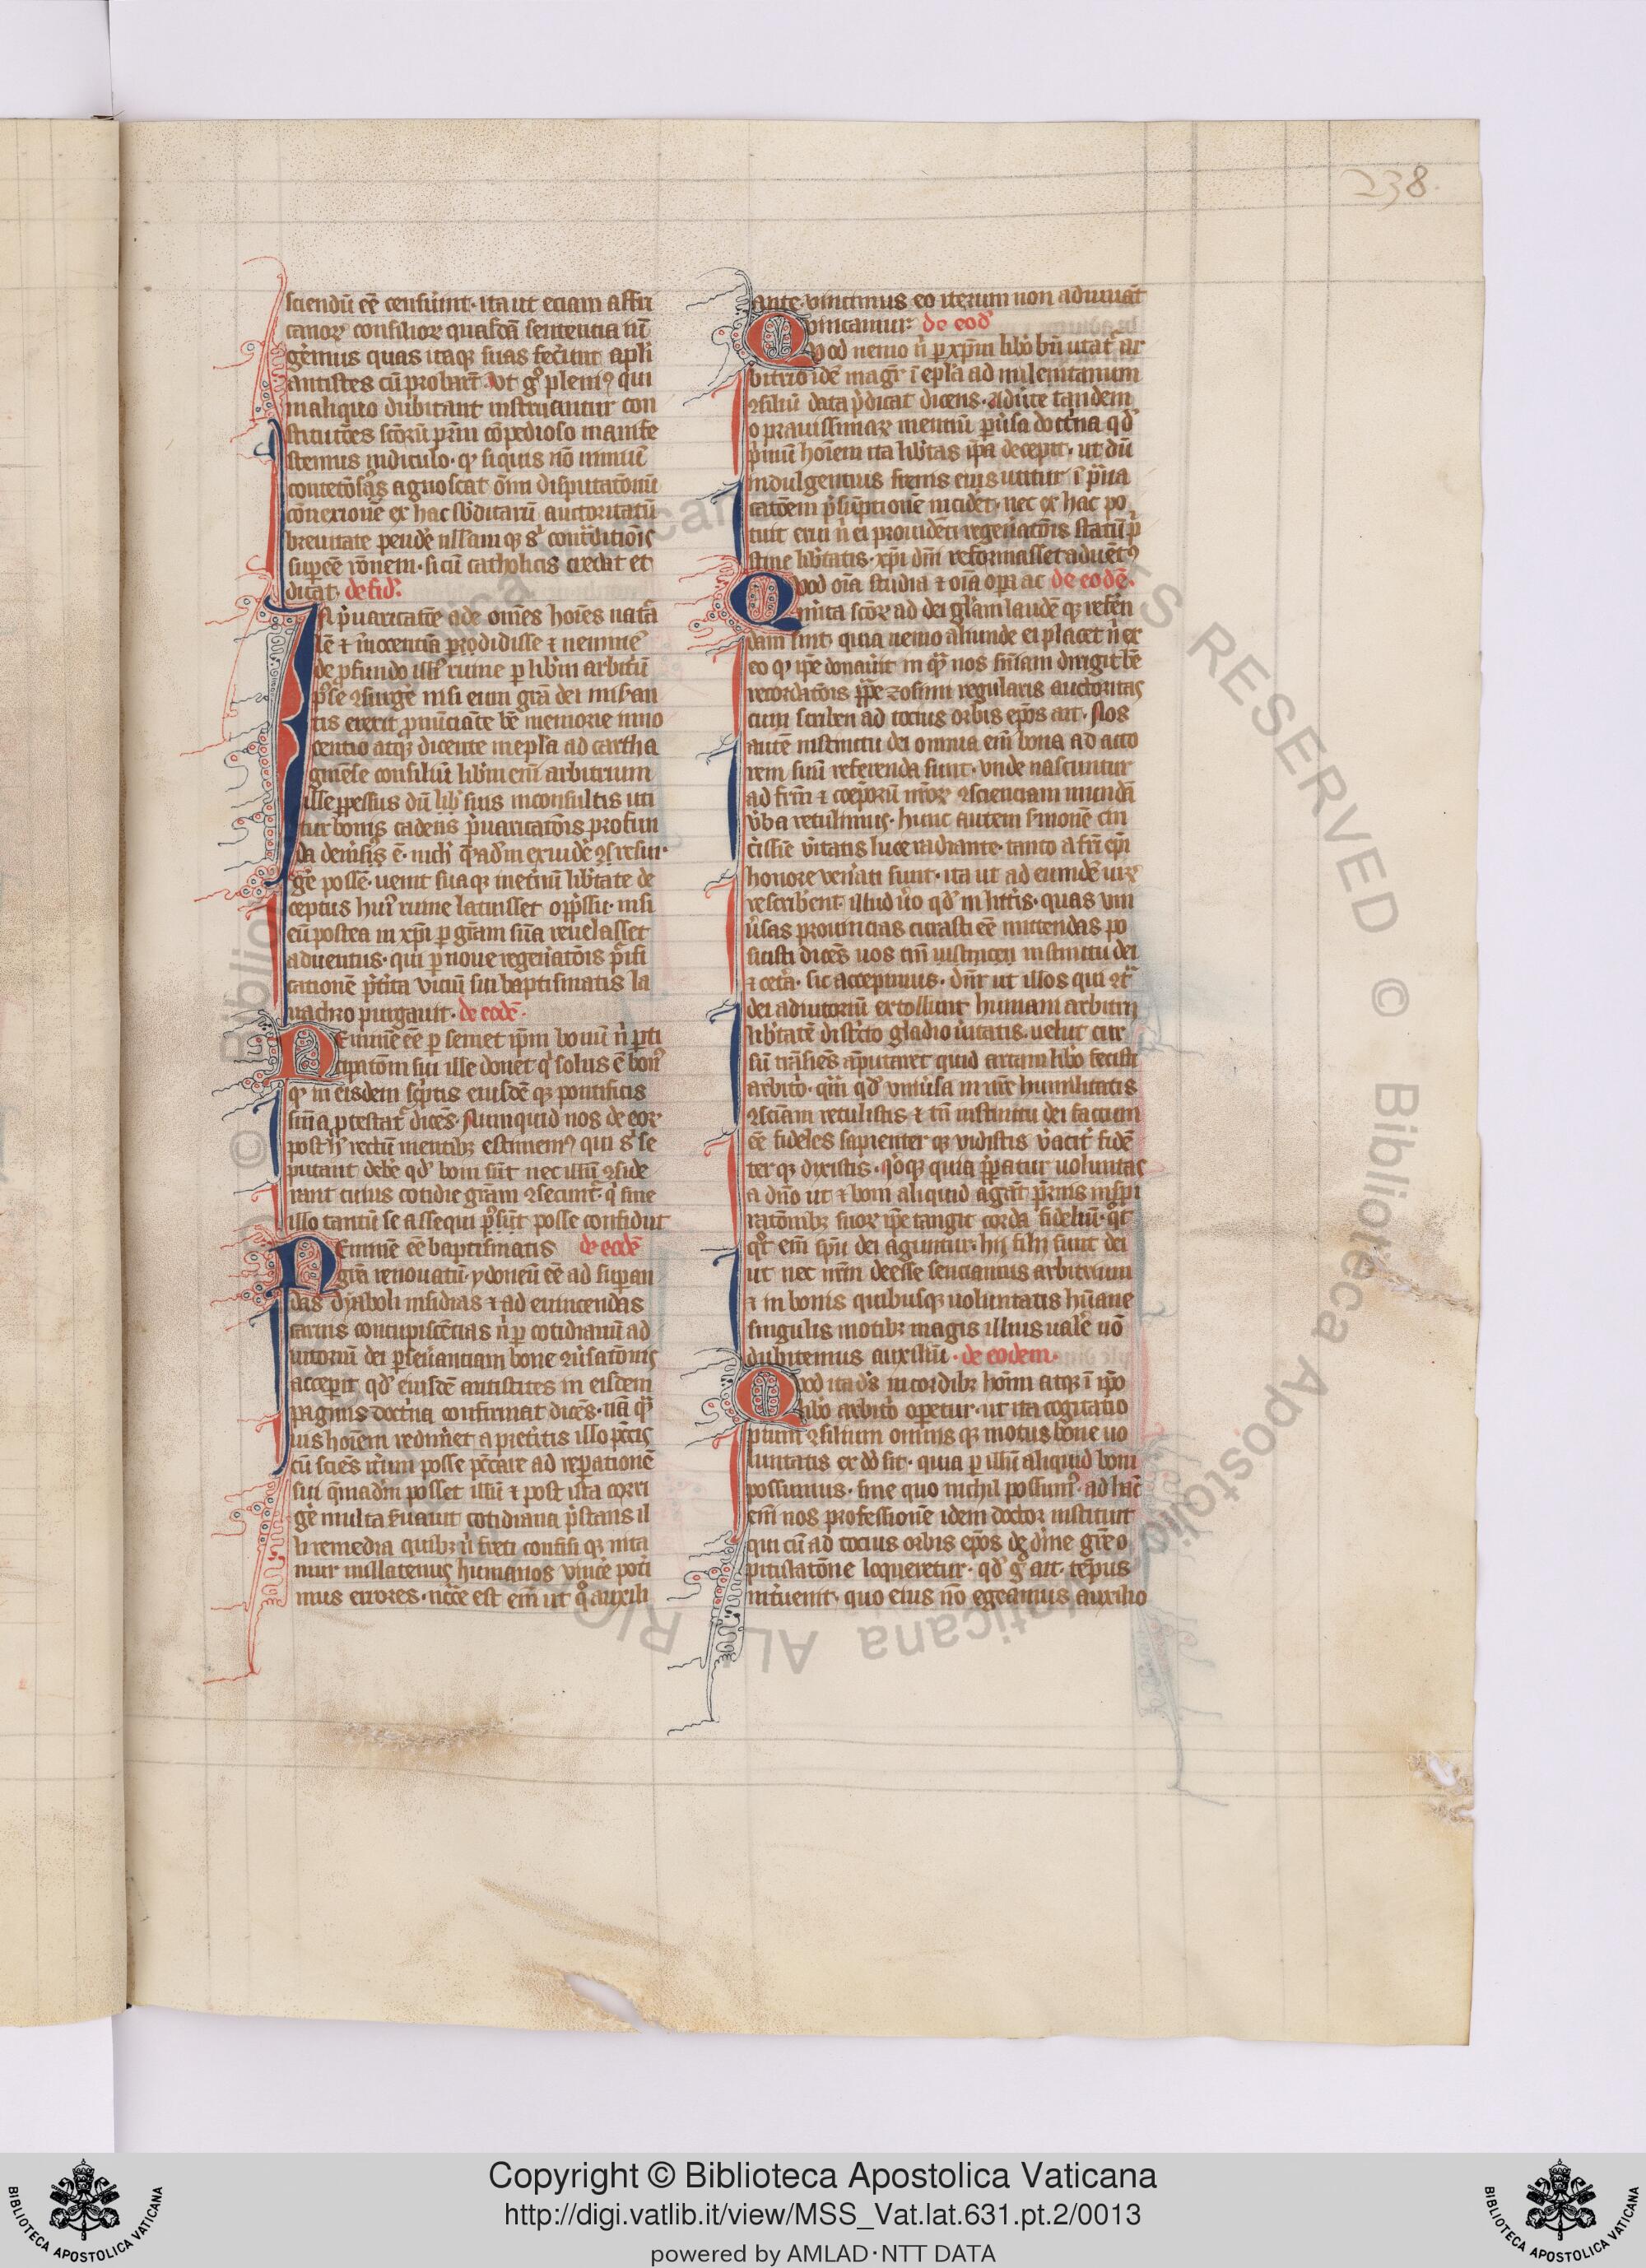 238.
sciendū eē censuerint · ita ut eciam affri
canoꝝ consilioꝝ quasdā sententia iūi
gemus quas itaqꝫ suas fecerunt apli
antistes cū probarēt · Ut gͦ pleniꝰ qui
in aliquo dubitant instruantur con
stitutōes scōrū patrū cōpēdioso manife
stemus indiculo · qͦ siquis nō nimiū
contētōsꝰ agnoscat omniū disputationū
connexionē ex hac subditarū auctoritatū
breuitate pendē nullam qꝫ sͥ contraditiōis
supeē rōnem · si cū catholicis credat et
dicat · de fid'.
In preuaricatōe ade omēs hoīes nāalē
lē ⁊ innocentiā perdidisse ⁊ neminē
de profundo illiꝰ ruine per liberū arbitriū
posse ɔsurgē nisi eum gra dei miseran
tis erexit pronūciāte bē memorie inno
centio atqꝫ dicente in epla ad cartha
ginēse consiliū liberū enī arbitrium
ille perpessus dū liberiꝰ suis inconsultis uti
tur bonis cadens preuaricatōnis profun
da demersꝰ ē · nichil quēadmodum exinde ɔsresur
gē possē · uenit suaqꝫ ineternū libertate de
ceptus huiꝰ ruine latuisset oppressu · nisi
eū postea in xpī per gram sua reuelasset
aduentus · qui per noue regeneratōis purifi
cationē preterita viciū sui baptismatis la
uachro purgauit · de eodē ·
Neminē eē per semet ipm bonū ni parti
cipatōm sui ille donet qͥ solus ē bonꝰ
qͦ in eisdem scriptis eiusdē qꝫ pontificis
sinia protestatr dicēs · Numquid nos de eoꝝ
post hͦ rectū mentibꝫ estimemꝰ qui sͥ se
putant debē qd' boni sunt nec illū ɔside
rant cuius cotidie gram ɔsecuntur · qͥ sine
illo tantū se assequi presunt posse confidūt
Neminē eē baptismatis de eodē
gra renouatū · ydoneū eē ad superan
das dyaboli insidias ⁊ ad euincendas
carnis concupiscētias ni per cotidianū ad
iutoriū dei perseuerantiam bone ɔuersatōnis
acceperit qd' eiusdē antistites in eisdem
paginis doctrina confirmat dicēs · nā quā
uis hoīem redimēt a preteritis illo peccatis
cū sciēs iterum posse peccare ad reparationē
sui quēadmodum posset illū ⁊ post ista corri
gē multa seruauit cotidiana prestans il
li remedia quibꝫ ni freti confisi qꝫ nita
mur nullatenus humanos vincē poti
mus errores · necesse est enī ut qͦ auxili
ante vincimus eo iterum non adiuuāte
vincamur de eod'
Quod nemo ni per xpm libero bn̄ utatr ar
bitrio idē magr ī epla ad mileuitanum
ɔsiliū data predicat dicens · Aduerte tandem
o prauissimaꝝ mentiū peruersa doctrina qd'
primū hoīem ita libertas ipa decepit · ut dū
indulgentius frenis eius utitur ī preuari
catōem presumptione incidēt · nec ex hac po
tuit erui ni ei prouidēti regeneratōis statū pri
stine libertatis · xpi dnī reformasset aduētꝰ
Quod oīa studia ⁊ oīa opa ac de eodē ·
merita scōꝝ ad dei glam laudē qꝫ referen
dam sint · quia nemo aliunde ei placet ni ex
eo qͦ ipe donauit in quā nos sniam dirigit bē
recordatōis pape zosimi regularis auctoritas
cum scriben ad tocius orbis epōs ait · Nos
autē instinctu dei omnia enī bona ad aucto
rem suū referenda sunt · vnde nascuntur
ad frm ⁊ coepōrū nrōꝝ ɔscienciam uniuersā
verba retulimus · hunc autem sermonē sin
cerissie veritatis luce radiante · tanto afri epi
honore venerati sunt · ita ut ad eumdē vir
rescribent illud uero qd' in litteris · quas vni
uersas prouincias curasti eē mittendas po
suisti dicēs nos tamen instinctu dei
⁊ cetera · sic accepimus · dictū ut illos qui ɔtra
dei adiutoriū extollunt humani arbitrii
libertatē districto gladio ueritatis · uelut cur
sim transiens amputaret quid enim tam libero fecisti
arbitrio · quā qd' vniuersa in nre humilitatis
ɔsciam retulistis · ⁊ tn̄ instinctu dei factum
eē fideles sapienter qꝫ vidistis veracitr fidē
ter qꝫ dixistis · ideoqꝫ quia preparatur uoluntas
a dno ut ⁊ boni aliquid agāt paternis inspi
ratōnibꝫ suoꝝ ipe tangit corda fideliū · quot
quot enī spū dei aguntur · hii filii sunt dei
ut nec nrm deesse senciamus arbitrium
⁊ in bonis quibusqꝫ uoluntatis humane
singulis motibꝫ magis illius ualē nō
dubitemus auxiliū · de eodem ·
Quod ita ds in cordibꝫ hominum atqꝫ ī ipo
libero arbitrio operetur · ut ita cogitatio
pium ɔsilium omnis qꝫ motus bone uo
luntatis ex deo sit · quia per illū aliquid boni
possumus · sine quo nichil possumꝰ · ad hāc
enī nos professionē idem doctor instituit
qui cū ad tocius orbis epōs de diuine gre o
pitulatōne loqueretur · qd' gͦ ait · tēpus
interuenit · quo eius nō egeamus auxilio
Copyright © Biblioteca Apostolica Vaticana
http://digi.vatlib.it/view/MSS_Vat.lat.631.pt.2/0013
powered by AMLAD·NTT DATA
BIBLIOTECA APOSTOLICA VATICANA
BIBLIOTECA APOSTOLICA VATICANA